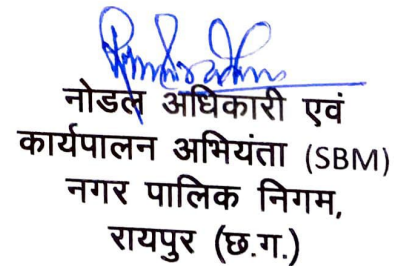 नोडल अधिकारी एवं
कार्यपालन अभियंता (SBM)
नगर पालिक निगम,
रायपुर (छ.ग.)